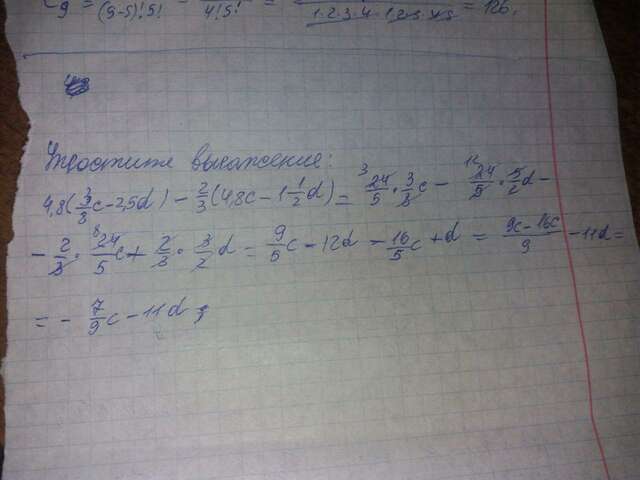 9 = (9-5)! 5! 4! 5! = 1·2·3·4·1·2·3·4·5 = 126.
Упростите выражение:
4,8(3/8c-2,5d) - 2/3(4,8c-1 1/2d) = 24/5 · 3/8c - 24/5 · 5/2d -
- 2/3 · 24/5c + 2/3 · 3/2d = 9/5c - 12d - 16/5c + d = 9c-16c/9 - 11d =
= - 7/9c - 11d ;